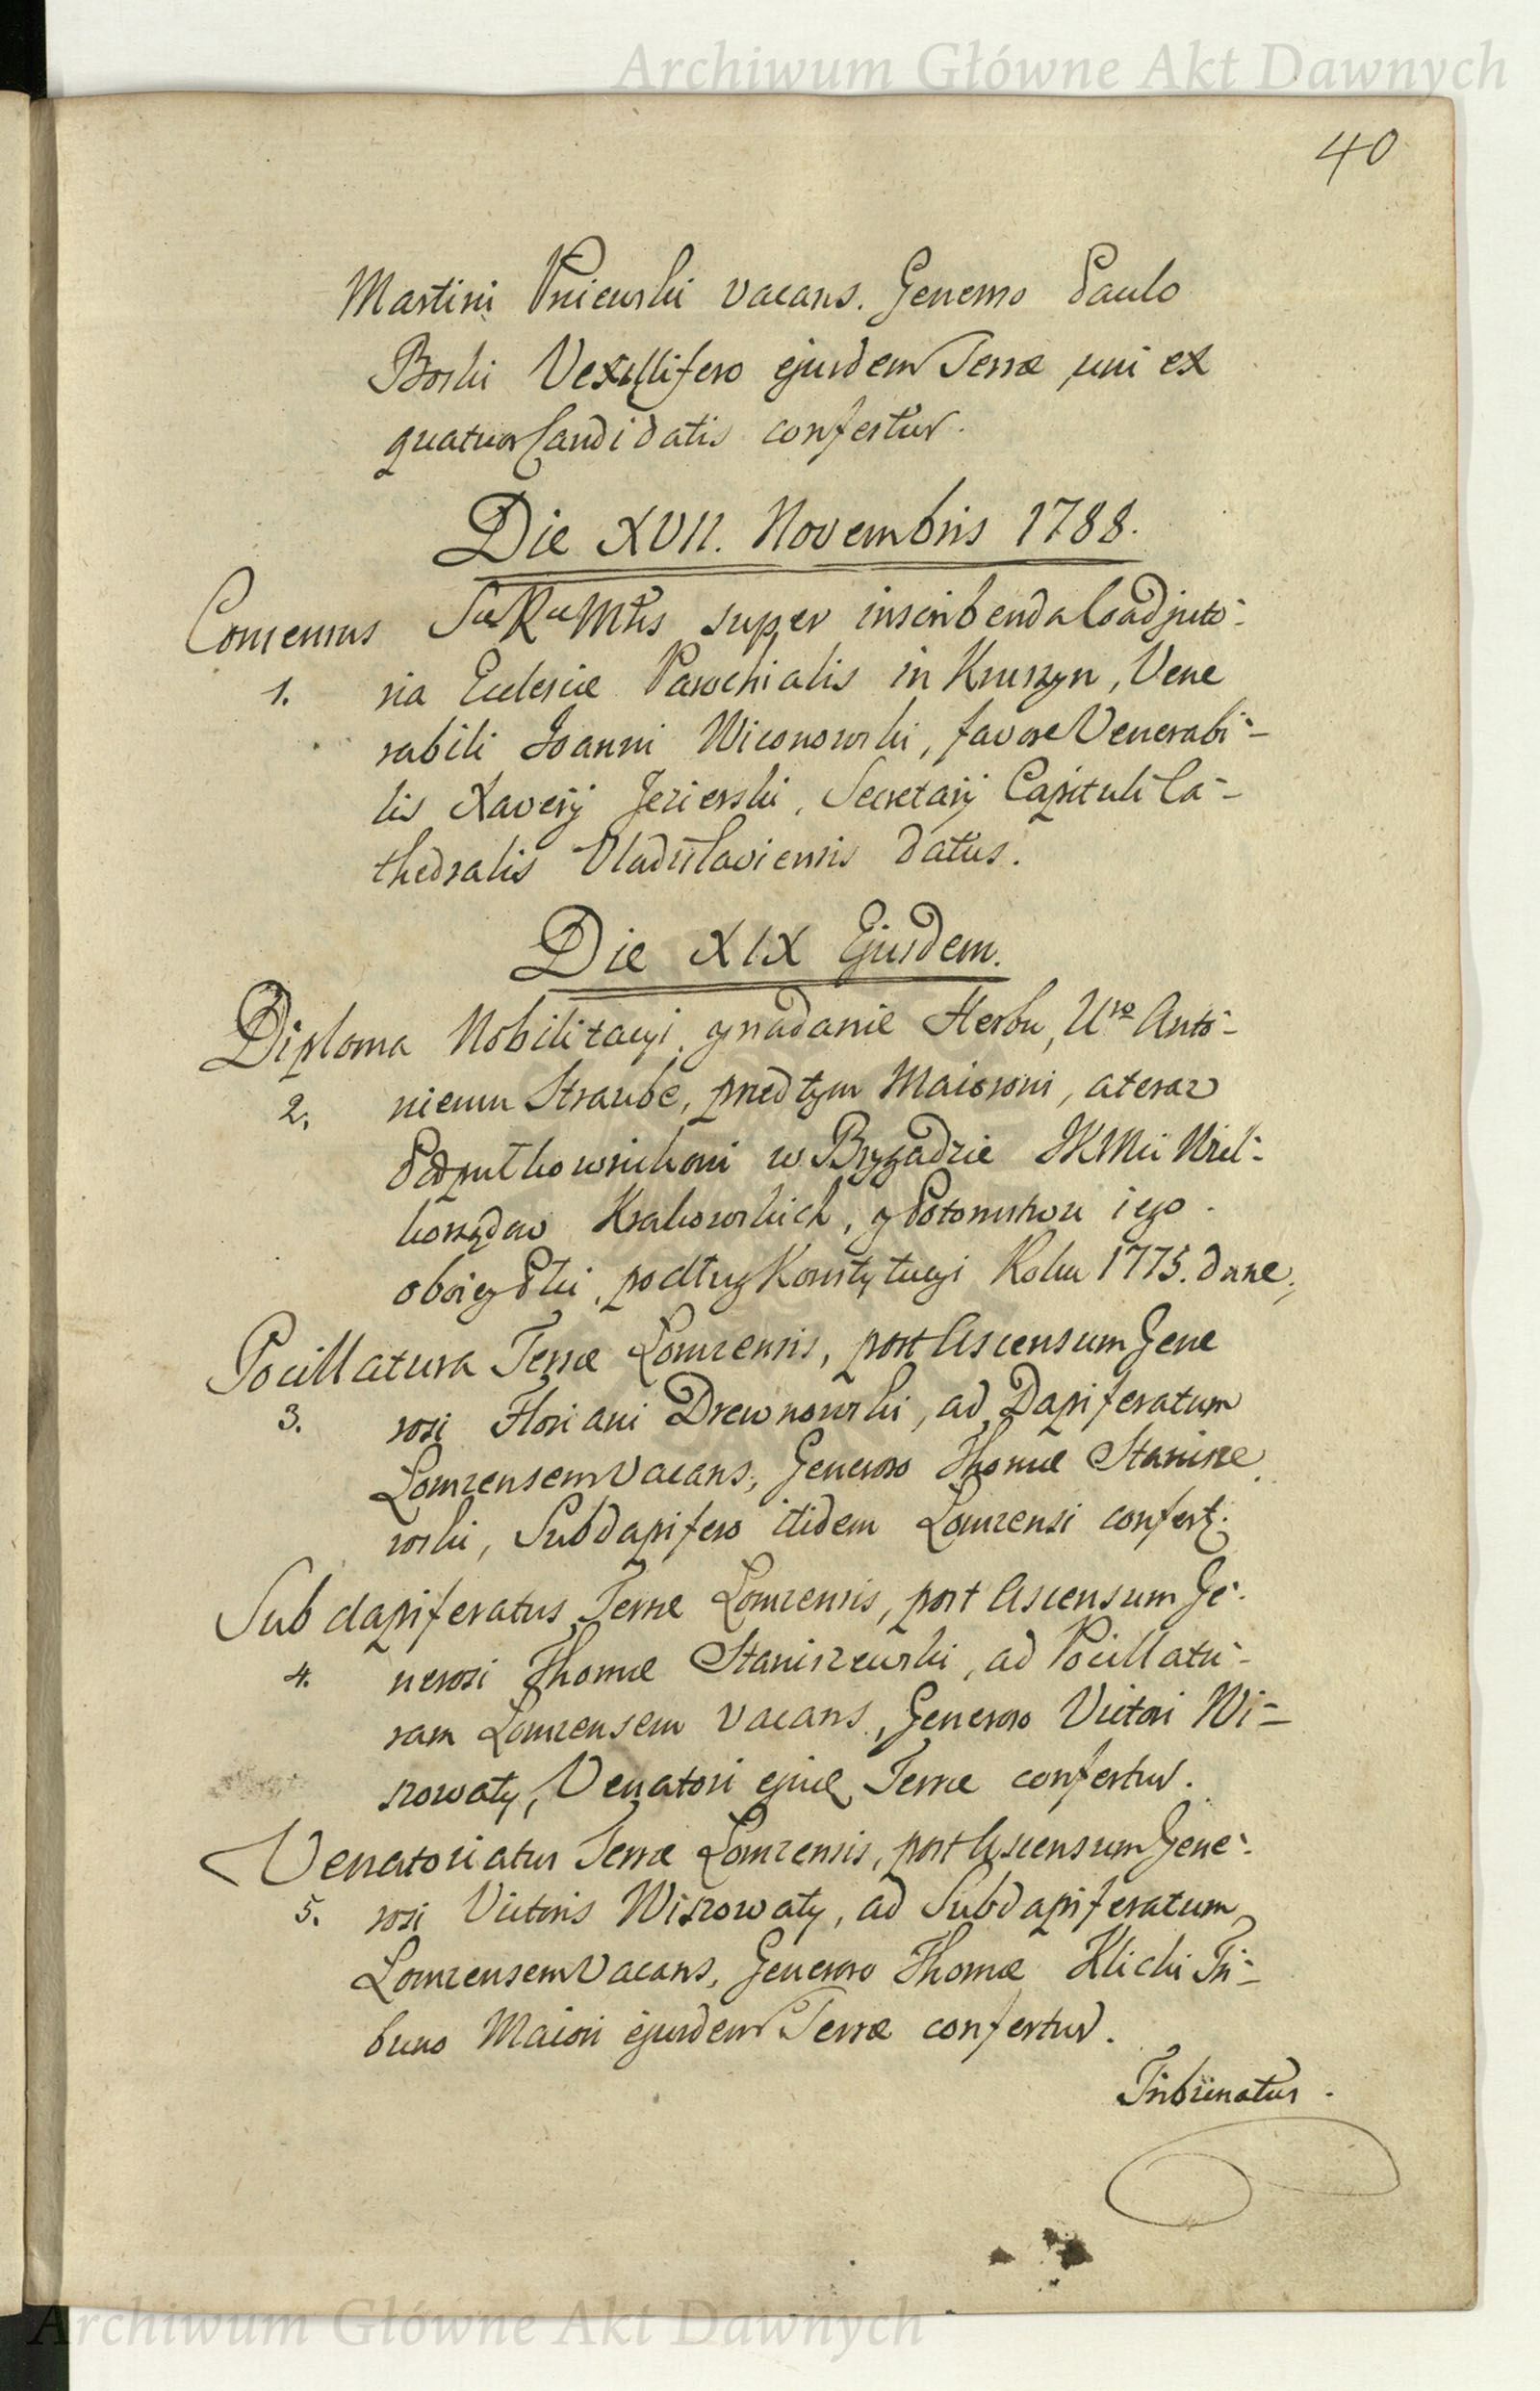 Archiwum Główne Akt Dawnych
40
Martini Pniewski vacans. Generoso Paulo
Borki Vexillifero ejusdem Terræ uni ex
quatuor Candidatis confertur.
Die XVII. Novembris 1788.
Consensus Sæ Ræ Mtis super inscribenda Coadjuto-
1. ria Ecclesiæ Parochialis in Kruszyn, Vene
rabili Joanni Wiconowski, favore Venerabi-
lis Xaverij Jezierski, Secretarij Capituli Ca-
thedralis Vladislaviensis datus.
Die XIX Ejusdem.
Diploma Nobilitacyi, y nadanie Herbu, Uro Anto-
2. niemu Straube, przedtym Maiorowi, a teraz
Podpułkownikowi w Brygadzie JKMci Wiel-
korządow Krakowskich, y Potomstwu iego
oboiey Płci, podług Konstytucyi Roku 1775. dane.
Pocillatura Terræ Lomzensis, post Ascensum Gene
3. rosi Floriani Drewnowski, ad Dapiferatum
Lomzensem vacans, Generoso Thomæ Stanisze
wski, Subdapifero itidem Lomzensi confert.
Subdapiferatus Terræ Lomzensis, post Ascensum Ge-
4. nerosi Thomæ Staniszewski, ad Pocillatu-
ram Lomzensem vacans, Generoso Victori Wi-
szowaty, Venatori ejusd Terræ confertur.
Venatoriatus Terræ Lomzensis, post Ascensum Gene-
5. rosi Victoris Wiszowaty, ad Subdapiferatum
Lomzensem vacans, Generoso Thomæ Klicki Tri-
buno Maiori ejusdem Terræ confertur.
Tribunatus.
Archiwum Główne Akt Dawnych